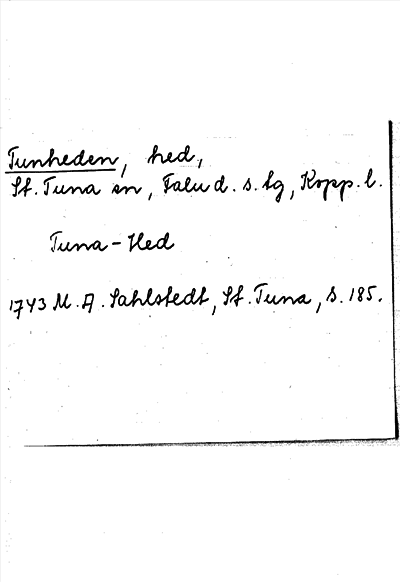 Tunheden, hed,
St. Tuna sn, Falu d. s. tg, Kopp. l.
Tuna-Hed
1743 M. A. Sahlstedt, St. Tuna, s. 185.